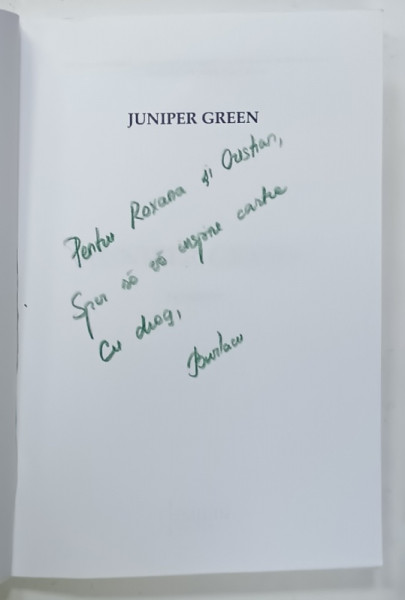 JUNIPER GREEN
Pentru Roxana și Cristian,
Sper să vă inspire cartea
Cu drag,
Burlacu